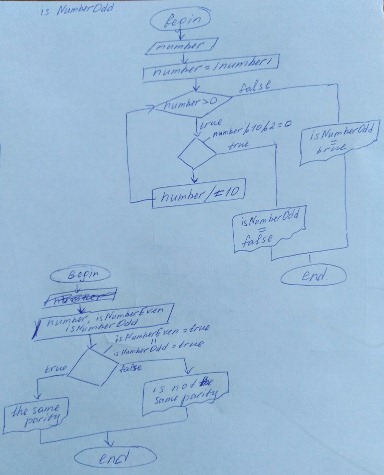 is NumberOdd
Begin
number
number = |number|
number > 0
false
true
number%10%2=0
true
number /= 10
isNumberOdd
=
true
isNumberOdd
=
false
end
Begin
number, isNumberEven
isNumberOdd
isNumberEven = true
||
isNumberOdd = true
true
false
the same
parity
is not the
same parity
end